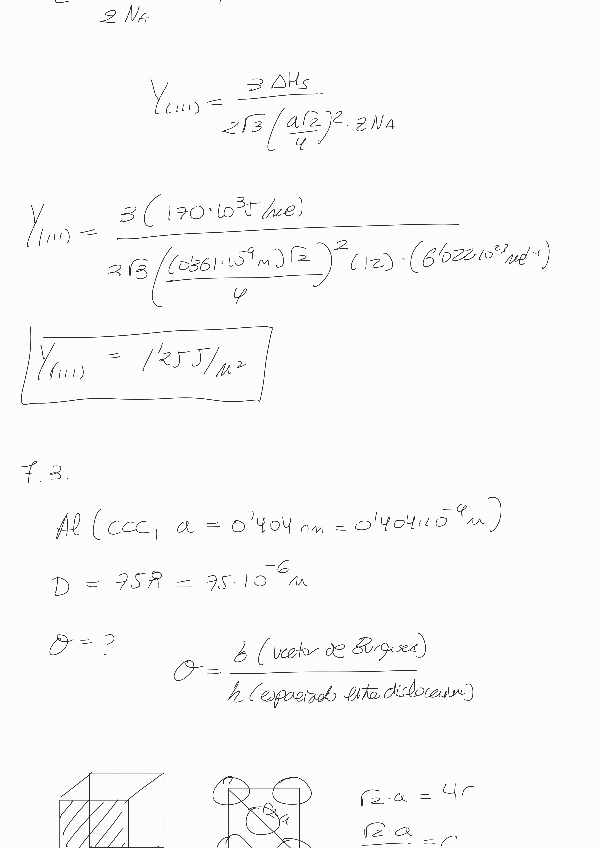 2 NA
γ(111) = 3 ΔHs / 2√3 (a√2/4)² · 2NA
γ(111) = 3 (170·10³J/mol) / 2√3 ((0'361·10⁻⁹m)√2/4)² (12) · (6'022·10²³ mol⁻¹)
γ(111) = 1'25 J/m²
7.3.
Al (CCC, a = 0'404 nm = 0'404·10⁻⁹m)
D = 75 = 75·10⁻⁶ m
θ = ?
θ = b (vector de Burgers) / h (espaciado entre dislocaciones)
√2·a
√2·a = 4r
√2·a = r